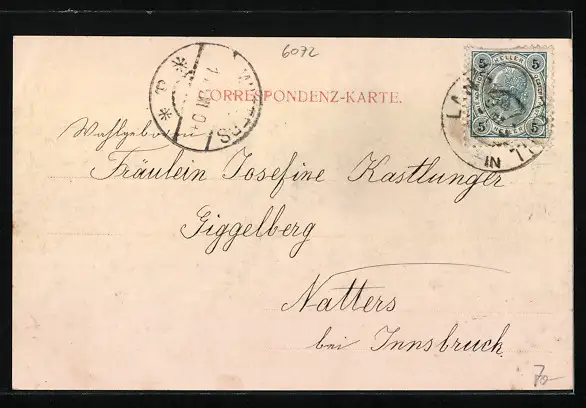 6072
CORRESPONDENZ-KARTE.
5 HELLER 5
5 5
LAN
IN TI
Fräulein Josefine Kastlunger
Giggelberg
Natters
bei Innsbruck.
70